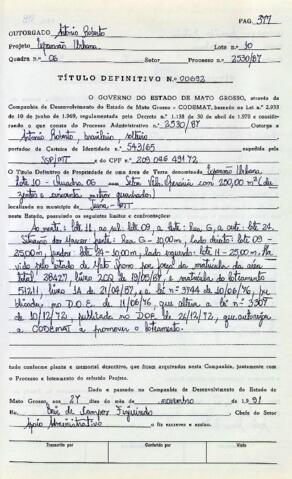 PAG. 377
OUTORGADO Antônio Roberto
Projeto Expansão Urbana Lote n.° 10
Quadra n.° 06 Setor Processo n.° 2530/87
TÍTULO DEFINITIVO N.° 00692
O GOVERNO DO ESTADO DE MATO GROSSO, através da
Companhia de Desenvolvimento do Estado de Mato Grosso - CODEMAT, baseado na Lei n.° 2.933
de 10 de junho de 1.969, regulamentada pelo Decreto n.° 1.138 de 30 de abril de 1.970 e considerando
o que consta do Processo Administrativo n.° 2530/87 Outorga a
Antônio Roberto, brasileiro, solteiro
portador da Carteira de Identidade n.° 543165 expedida pela
SSP/MT e do CPF n.° 209 046 491 72
O Título Definitivo de Propriedade de uma área de Terra denominada Expansão Urbana
Lote 10 - Quadra 06 - Setor Vila Operária com 250,00 m² (du
zentos e cinquenta metros quadrados)
localizada no município de - MT
neste Estado, possuindo os seguintes limites e confrontações:
Ao norte: lote 11, ao sul: lote 09, a leste: Rua G, a oeste: lote 24.
Rua G - 10,00m, lado direito: lote 09 -
25,00m, fundos: lote 24 - 10,00m, lado esquerdo: lote 11 - 25,00m.
vido pelo Estado de Mato Grosso por força da matrícula da área
total 28427, livro 2 de 19/05/87, e matrícula do loteamento
51211, livro 1A de 21/04/87, e a lei n° 3744 de 10/06/76, pu
blicada, no D.O.E. de 11/06/76, que altera a lei n° 3307
de 10/12/72, publicada no D.O.E. de 26/12/72, que autoriza
a CODEMAT a promover o loteamento.
tudo conforme planta e memorial descritivo, que ficam arquivados nesta Companhia, juntamente com
o Processo e loteamento do referido Projeto.
Dado e passado na Companhia de Desenvolvimento do Estado de
Mato Grosso, aos 27 dias do mês de novembro de 1.991
Eu, de Campos Figueiredo, Chefe do Setor
Apoio Administrativo o fiz escrever e assino.
Transcrito por Conferido por Visto